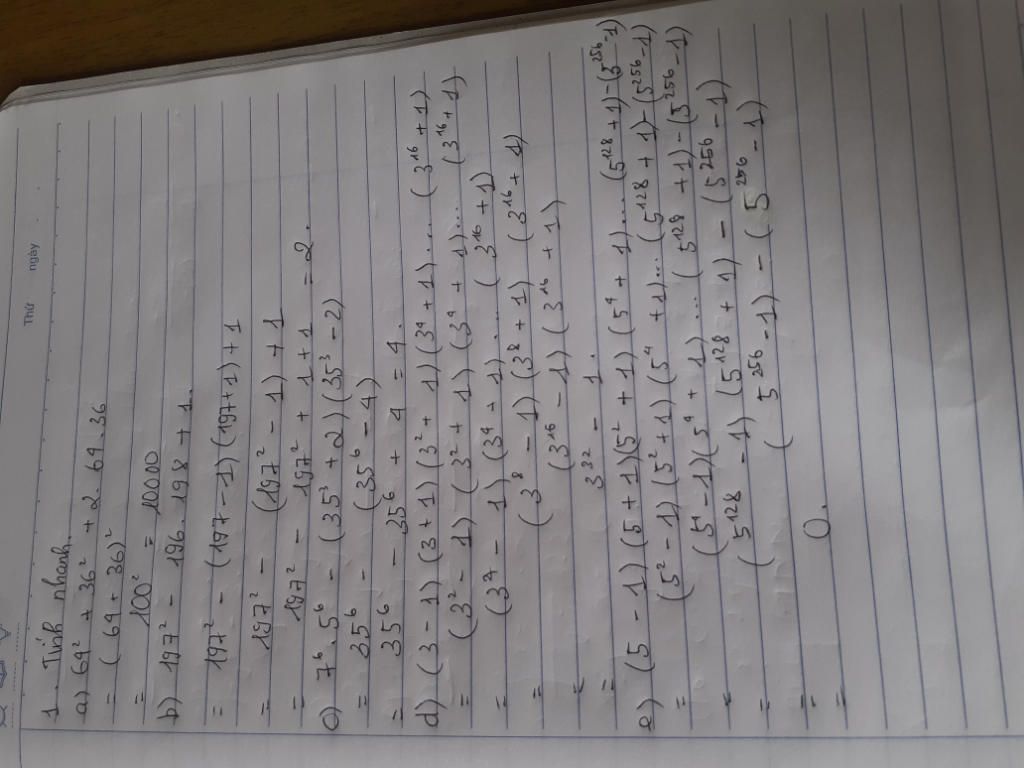 Thứ ngày
1. Tính nhanh.
a) 64² + 36² + 2 64.36
= (64 + 36)²
= 100² = 10000
b) 197² - 196.198 + 1.
= 197² - (197 - 1)(197+1) + 1
= 197² - (197² - 1) + 1
= 197² - 197² + 1 + 1 = 2.
c) 7⁶.5⁶ - (35² + 2)(35³ - 2)
= 35⁶ - (35⁶ - 4)
= 35⁶ - 35⁶ + 4 = 4.
d) (3 - 1)(3 + 1)(3² + 1)(3⁴ + 1)....(3¹⁶ + 1)
= (3² - 1)(3² + 1)(3⁴ + 1)....(3¹⁶ + 1)
= (3⁴ - 1)(3⁴ + 1)....(3¹⁶ + 1)
= (3⁸ - 1)(3⁸ + 1)(3¹⁶ + 1)
= (3¹⁶ - 1)(3¹⁶ + 1)
= 3³² - 1.
e) (5 - 1)(5 + 1)(5² + 1)(5⁴ + 1)....(5¹²⁸ + 1) - (5²⁵⁶ - 1)
= (5² - 1)(5² + 1)(5⁴ + 1)...(5¹²⁸ + 1) - (5²⁵⁶ - 1)
= (5⁴ - 1)(5⁴ + 1)...(5¹²⁸ + 1) - (5²⁵⁶ - 1)
= (5¹²⁸ - 1)(5¹²⁸ + 1) - (5²⁵⁶ - 1)
= (5²⁵⁶ - 1) - (5²⁵⁶ - 1)
= 0.